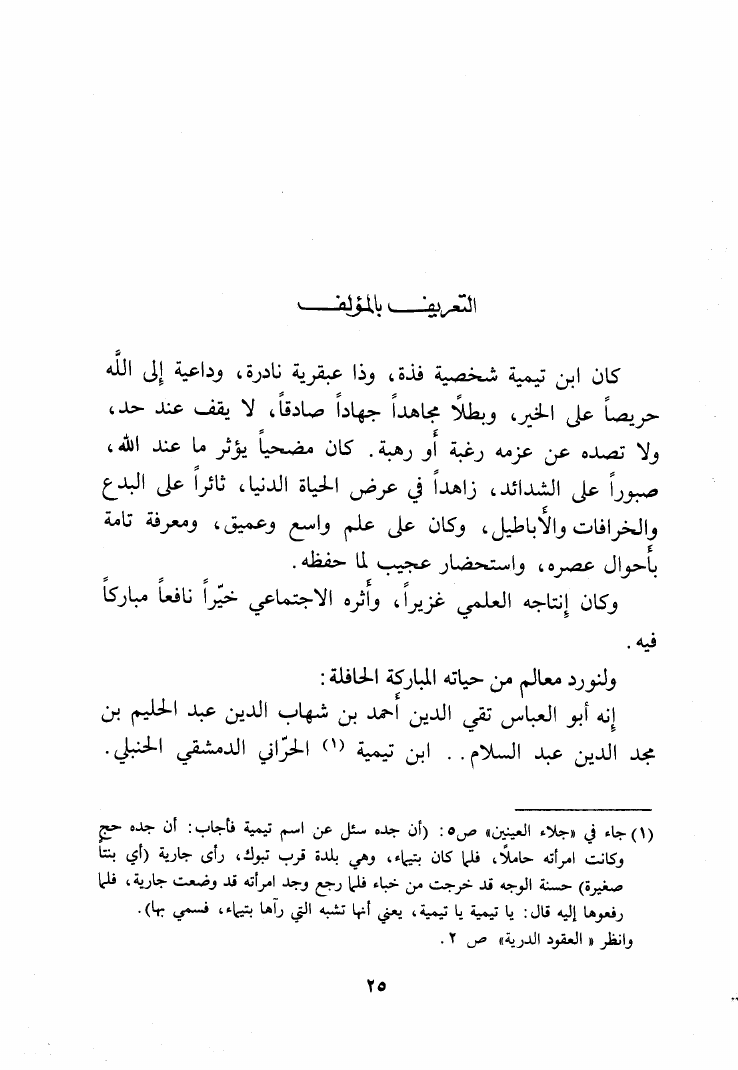 التعريف بالمؤلف
كان ابن تيمية شخصية فذة، وذا عبقرية نادرة، وداعية إلى اللَّه
حريصاً على الخير، وبطلاً مجاهداً جهاداً صادقاً، لا يقف عند حد،
ولا تصده عن عزمه رغبة أو رهبة. كان مضحياً يؤثر ما عند الله،
صبوراً على الشدائد، زاهداً في عرض الحياة الدنيا، ثائراً على البدع
والخرافات والأباطيل، وكان على علم واسع وعميق، ومعرفة تامة
بأحوال عصره، واستحضار عجيب لما حفظه.
وكان إنتاجه العلمي غزيراً، وأثره الاجتماعي خيّراً نافعاً مباركاً
فيه.
ولنورد معالم من حياته المباركة الحافلة:
إنه أبو العباس تقي الدين أحمد بن شهاب الدين عبد الحليم بن
مجد الدين عبد السلام.. ابن تيمية (١) الحرّاني الدمشقي الحنبلي.
(١) جاء في «جلاء العينين» ص٥: (أن جده سئل عن اسم تيمية فأجاب: أن جده حج
وكانت امرأته حاملاً، فلما كان بتيماء، وهي بلدة قرب تبوك، رأى جارية (أي بنتاً
صغيرة) حسنة الوجه قد خرجت من خباء فلما رجع وجد امرأته قد وضعت جارية، فلما
رفعوها إليه قال: يا تيمية يا تيمية، يعني أنها تشبه التي رآها بتيماء، فسمي بها).
وانظر « العقود الدرية» ص ٢.
٢٥